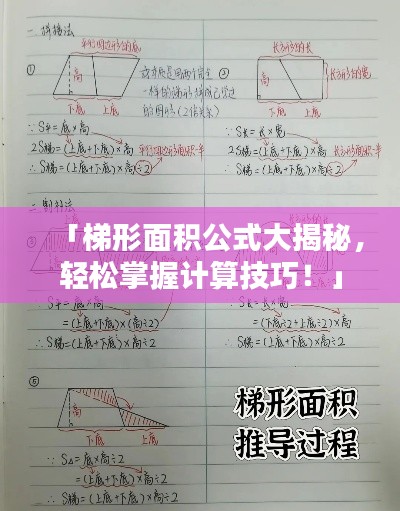 一 拼接法
平行四边形的底
长方形的长
①
高
下底 上底
②
长方形的宽
下底 上底
∵S平=底×高
2S梯=(上底+下底)×高
∴S梯=(上底+下底)×高÷2
∵S长=长×宽
2S梯=(上底+下底)×高
∴S梯=(上底+下底)×高÷2
「梯形面积公式大揭秘,
轻松掌握计算技巧!」
=(上底+下底)×(高÷2)
∴S梯=(上底+下底)×高÷2
=(下底÷2+上底÷2)×高
∴S梯=(上底+下底)×高÷2
⑤
高
下底 上底
∵S△=底×高÷2
=(上底+下底)×高÷2
∴S梯=(上底+下底)×高÷2
梯形面积
推导过程